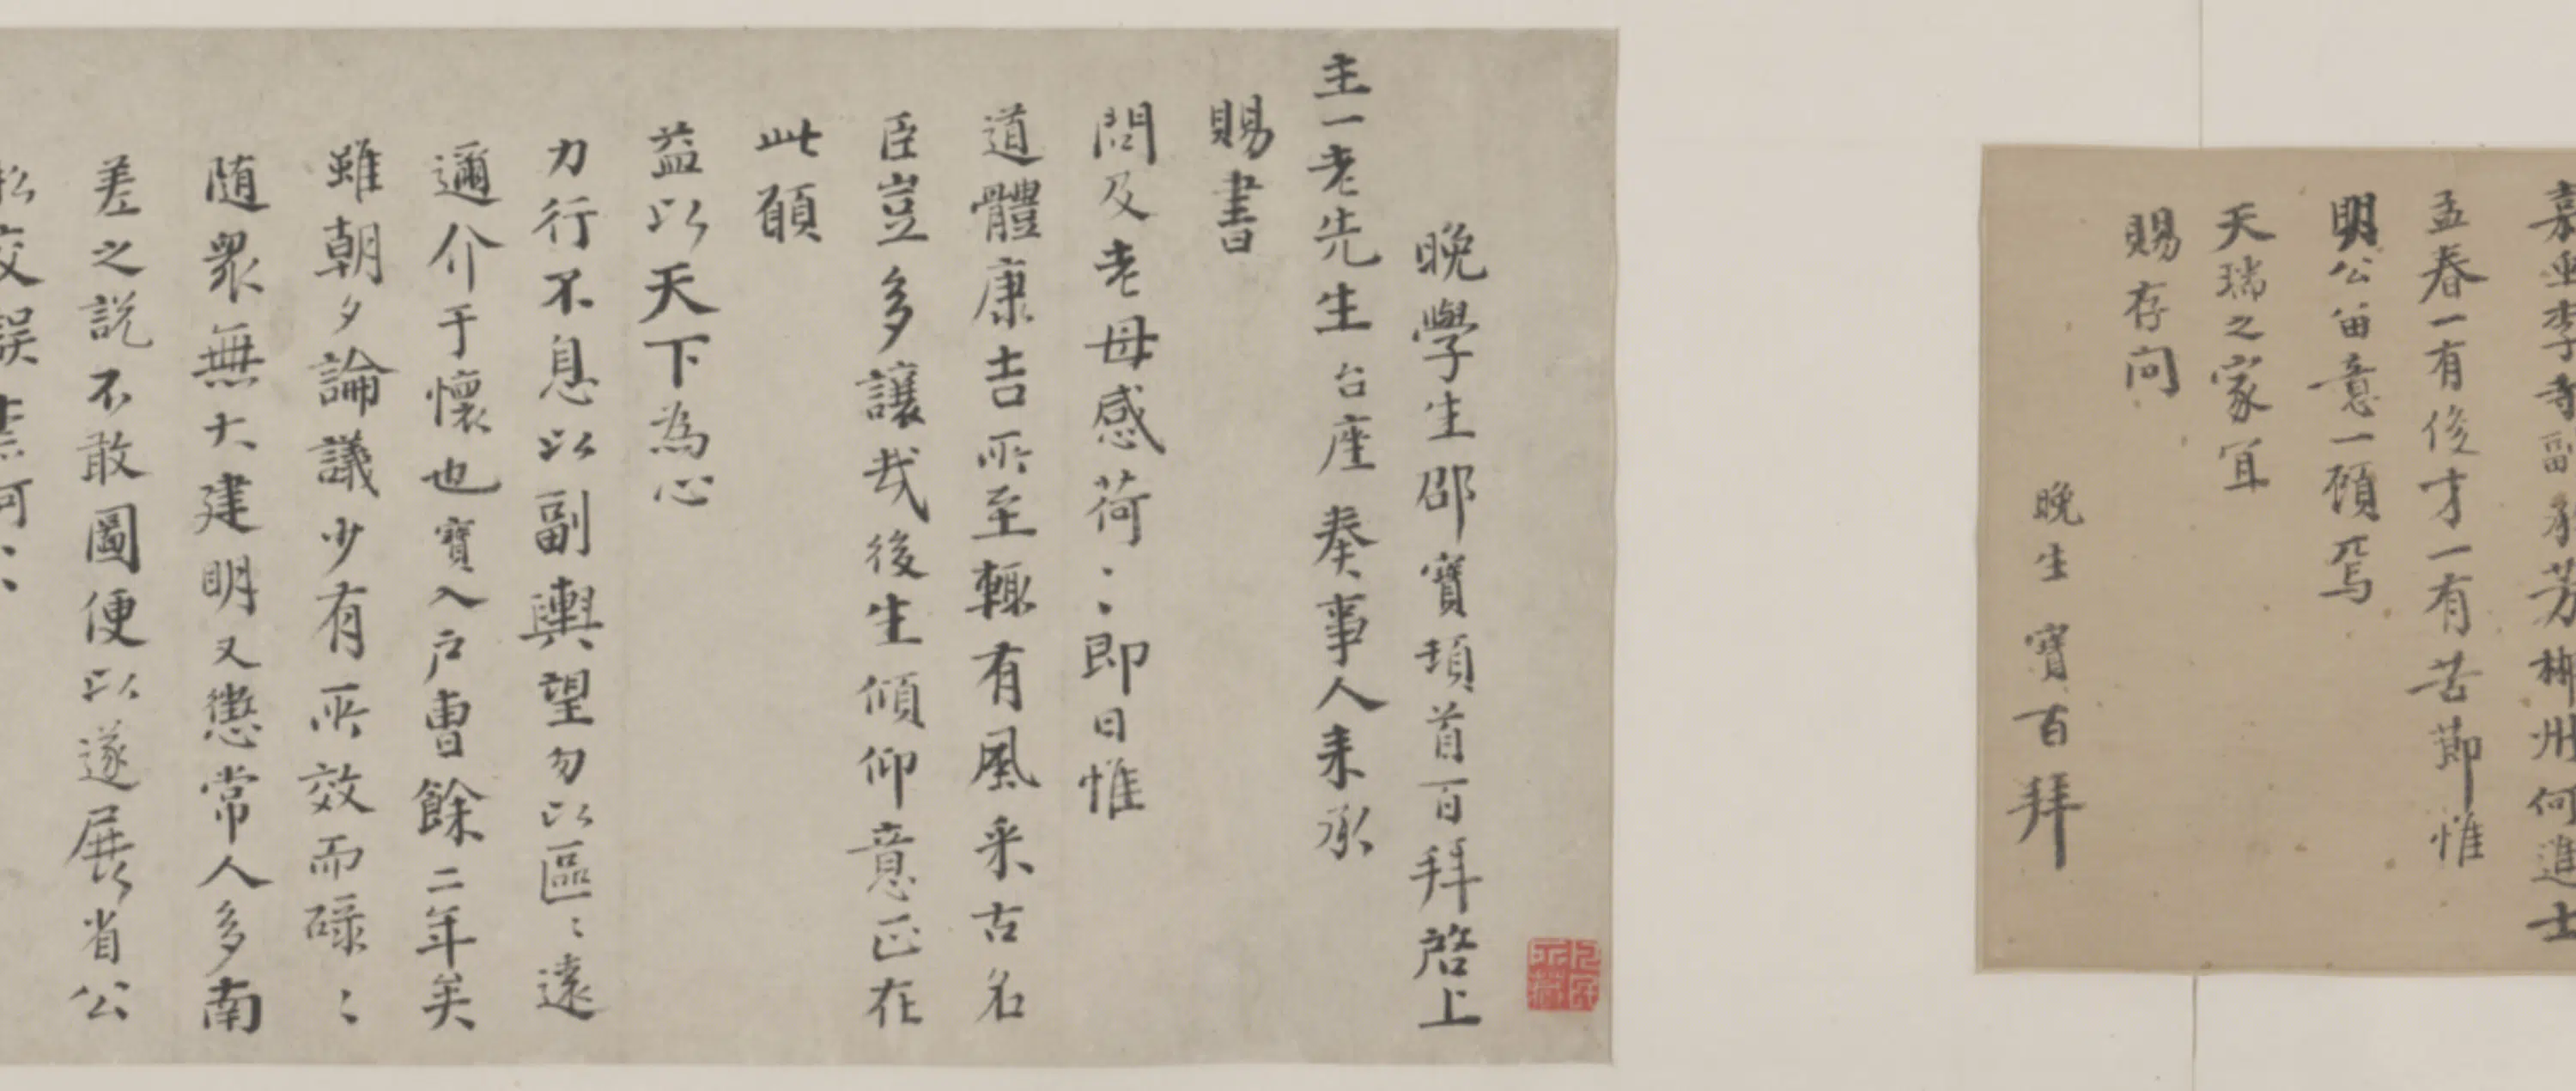 孟春一有後才一有苦節惟
明公留意一顧焉
天瑞之家宜
賜存问
晚生寶百拜
晚學生邵寶頓首百拜啓上
主一老先生台座奏事人来承
賜書
問及老母感荷:即日惟
道體康吉所至輒有風采古名
臣豈多讓哉後生傾仰意正在
此顧
益以天下為心
力行不息以副輿望勿以區:遠
邇介于懷也寶入户曹餘二年矣
雖朝夕論議少有所效而碌:
随衆無大建明又懲常人多南
差之説不敢圖便以遂展省公